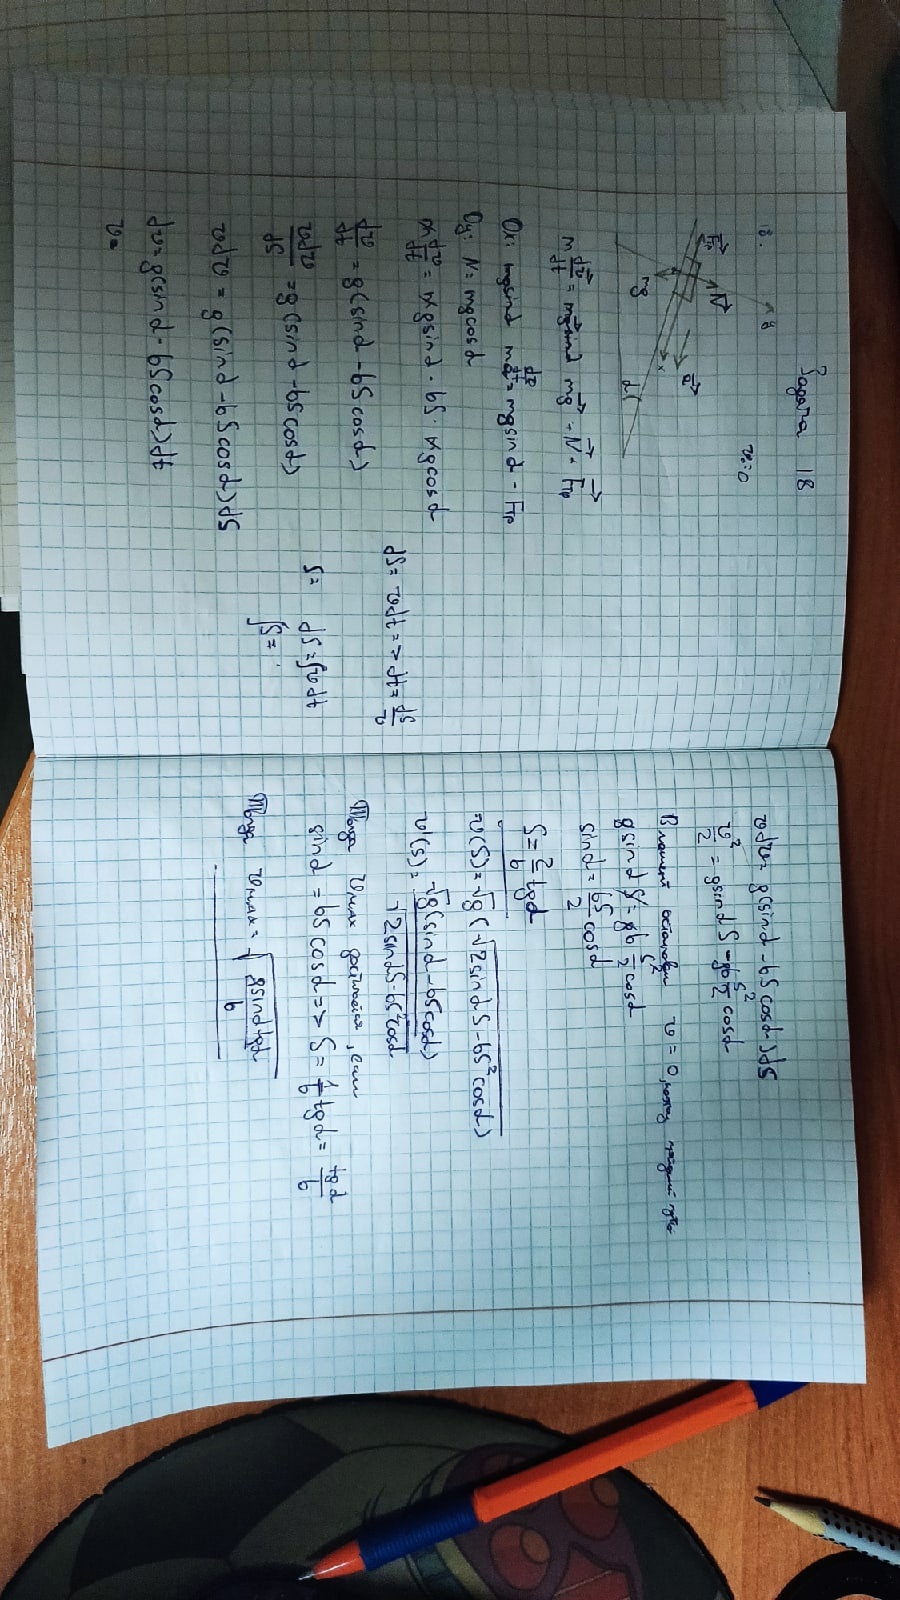 Задача 18
18.
v₀=0
y
N
Fтр
a
x
mg
α
m dv/dt = mg = N + Fтр
Ox: mgsinα m dv/dt = mgsinα - Fтр
Oy: N = mgcosα
m dv/dt = mgsinα - bS · mgcosα
dv/dt = g(sinα - bScosα)
dS = vdt => dt = dS/v
vdv/dS = g(sinα - bScosα)
S = dS = ∫vdt
vdv = g(sinα - bScosα)dS
S =
dv = g(sinα - bScosα)dt
v=
vdv = g(sinα - bScosα)dS
v²/2 = gsinαS - gb S²/2 cosα
В момент остановки v = 0, найдем
gsinαS = gb S²/2 cosα
sinα = bS/2 cosα
S = 2/b tgα
v(S) = √g(√2sinαS - bS²cosα)
v'(S) = √g(sinα - bScosα)/√2sinαS - bS²cosα
Тогда vmax достигается, если
sinα = bScosα => S = 1/b tgα = tgα/b
Тогда vmax = √gsinαtgα/b